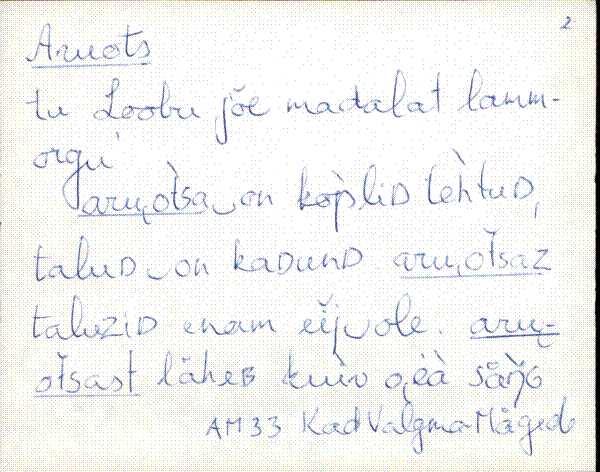 2
Aruots
tu Loobu jõe madalat lamm-
orgu
aru͔òtsa‿on kòplıD tèhtuD,
taluD‿on kaDunD aru͔otsaz
taluzıD enam eij‿ole. aru͔-
otsast läheB kuiv
AM 33 Kad Valgma-Mägede